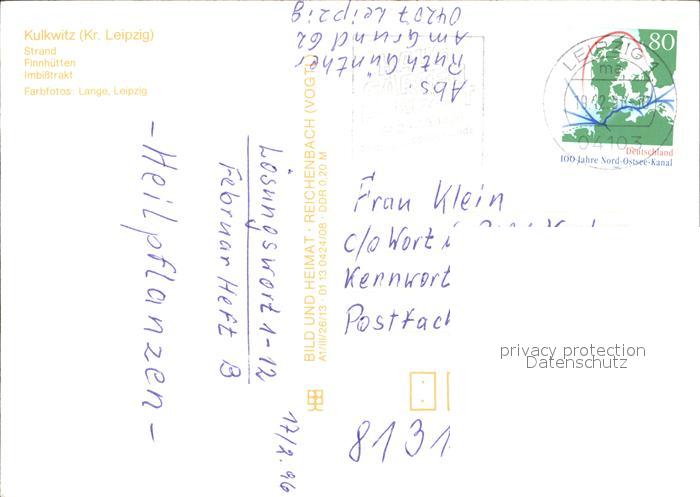 Kulkwitz (Kr. Leipzig)
Strand
Finnhütten
Imbißtrakt
Farbfotos: Lange, Leipzig
Abs:
Ruth Günther
Am Grund 62
04207 Leipzig
80
LEIPZIG 1
04103
Deutschland
100 Jahre Nord-Ostsee-Kanal
BILD UND HEIMAT · REICHENBACH (VOGTL)
A1/III/26/13 · 01 13 0424/08 · DDR 0,20 M
Lösungswort 1-12
Februar Heft B
-Heilpflanzen-
17/2.96
Frau Klein
c/o Wort
Kennwort
Postfach
8131
privacy protection
Datenschutz